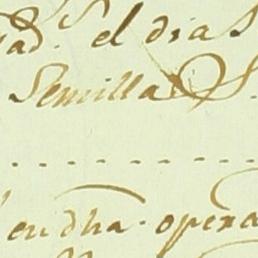 rad.ˢ el dia S
Semilla S.
- - - - - - - - - -
en dha. opera